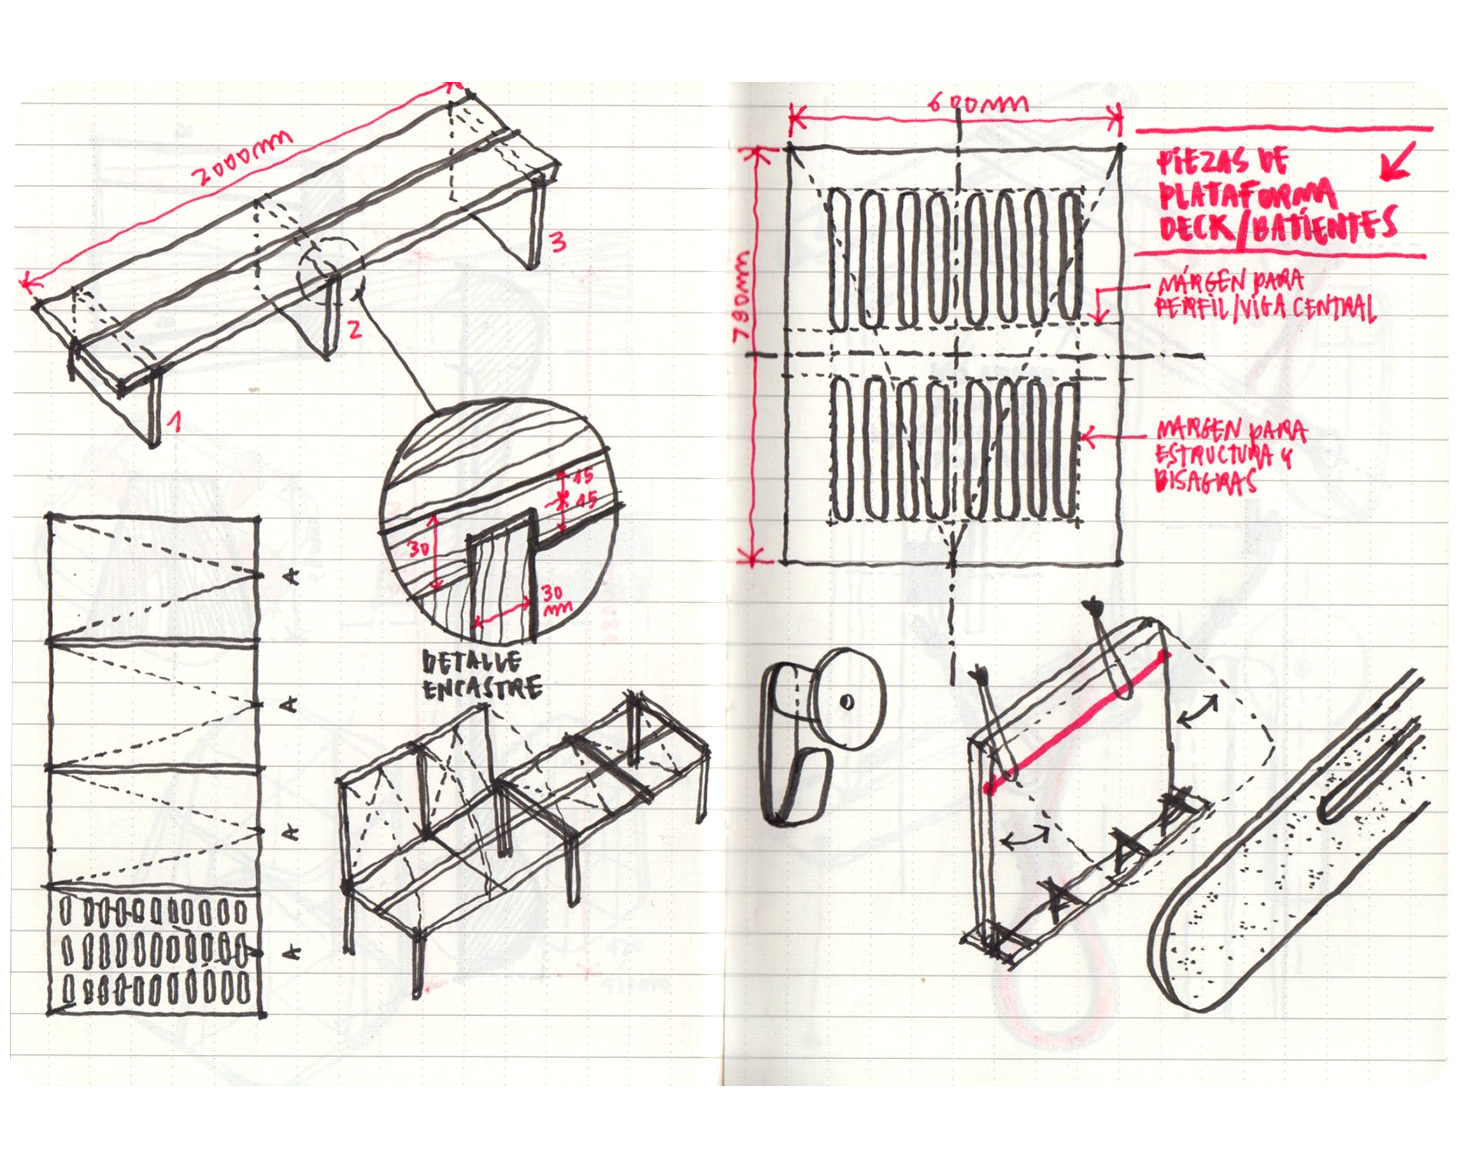 2000mm
3
2
1
15
15
30
30
mm
DETALLE
ENCASTRE
A
A
A
A
600mm
780mm
PIEZAS DE
PLATAFORMA
DECK/BATIENTES
MÁRGEN PARA
PERFIL/VIGA CENTRAL
MARGEN PARA
ESTRUCTURA Y
BISAGRAS